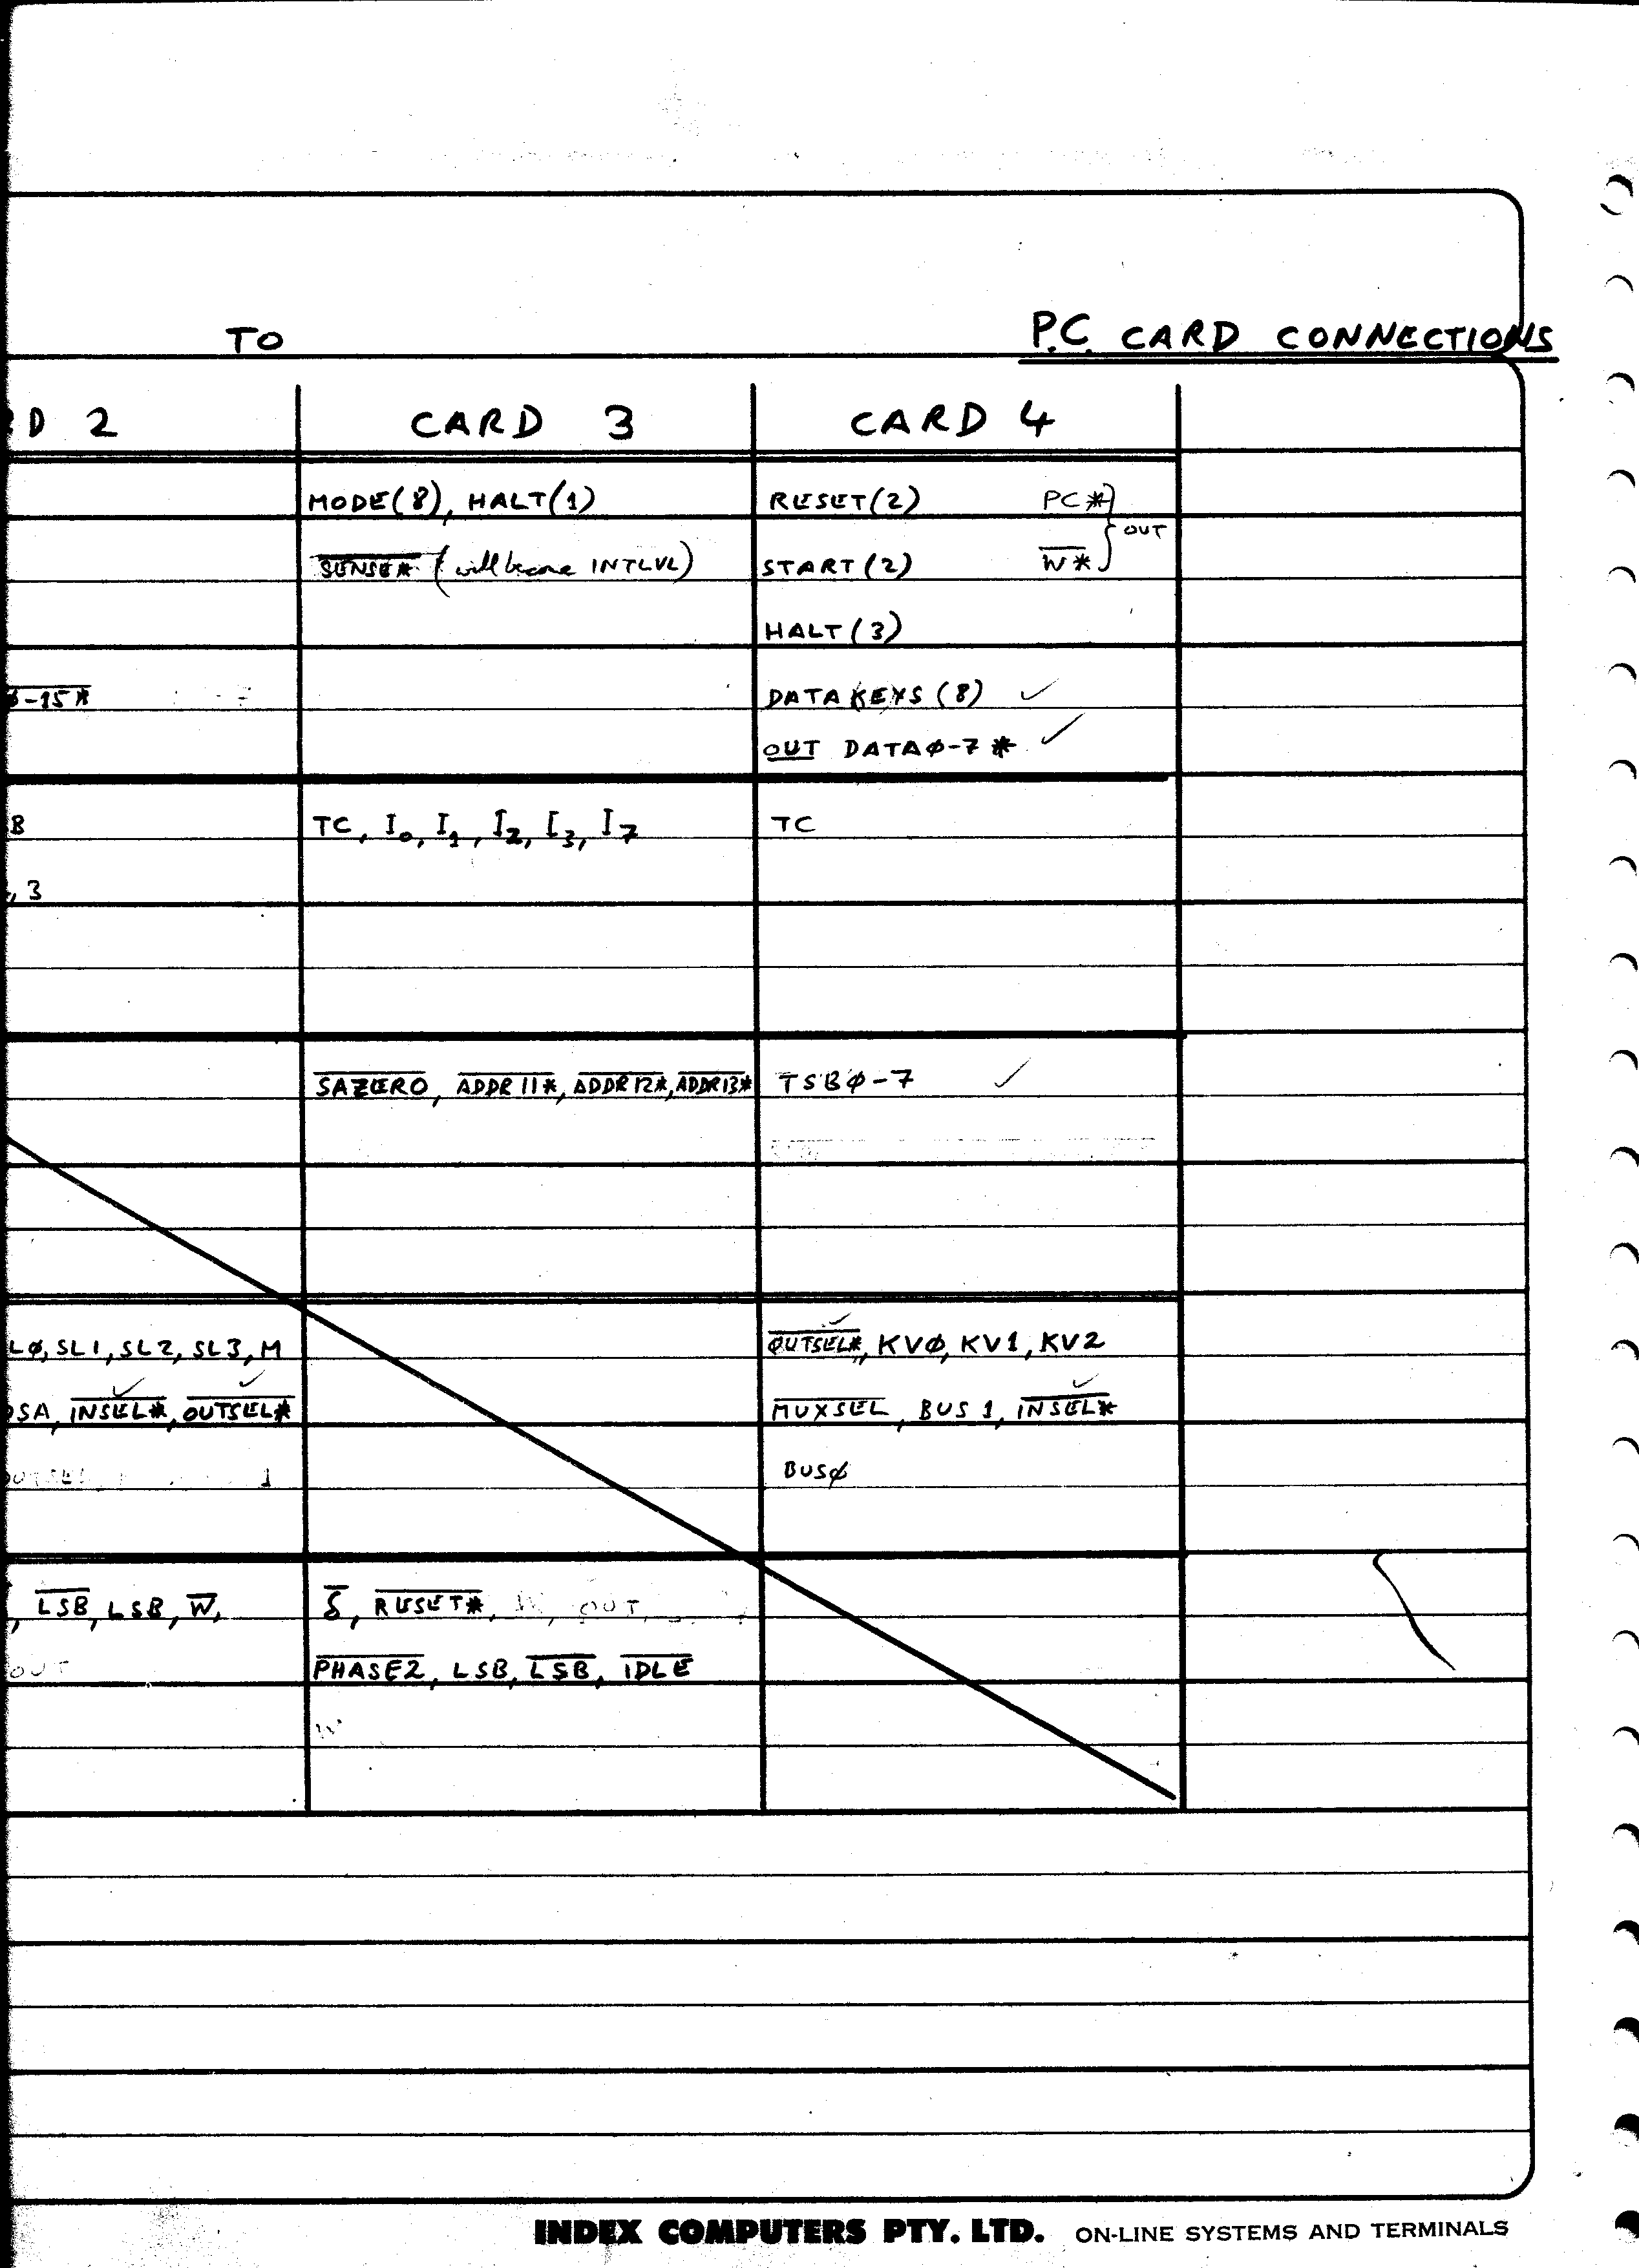 TO P.C. CARD CONNECTIONS
D 2 CARD 3 CARD 4
MODE(8), HALT(1) RESET(2) PC*
OUT
S̅E̅N̅S̅E̅*̅ (will become INTLVL) START(2) W̅*̅
HALT(3)
-̅1̅5̅*̅ DATA KEYS (8) ✓
OUT DATAØ-7* ✓
B TC, I₀, I₁, I₂, I₃, I₇ TC
, 3
S̅A̅Z̅E̅R̅O̅, A̅D̅D̅R̅1̅1̅*̅, A̅D̅D̅R̅1̅2̅*̅, A̅D̅D̅R̅1̅3̅*̅ TSBØ-7 ✓
LØ, SL1, SL2, SL3, M O̅U̅T̅S̅E̅L̅*̅, KVØ, KV1, KV2
SA, I̅N̅S̅E̅L̅*̅, O̅U̅T̅S̅E̅L̅*̅ M̅U̅X̅S̅E̅L̅, BUS 1, I̅N̅S̅E̅L̅*̅
BUSØ
, L̅S̅B̅, LSB, W̅, S̅, R̅E̅S̅E̅T̅*̅, OUT
OUT P̅H̅A̅S̅E̅2̅, LSB, L̅S̅B̅, I̅D̅L̅E̅
INDEX COMPUTERS PTY. LTD. ON-LINE SYSTEMS AND TERMINALS